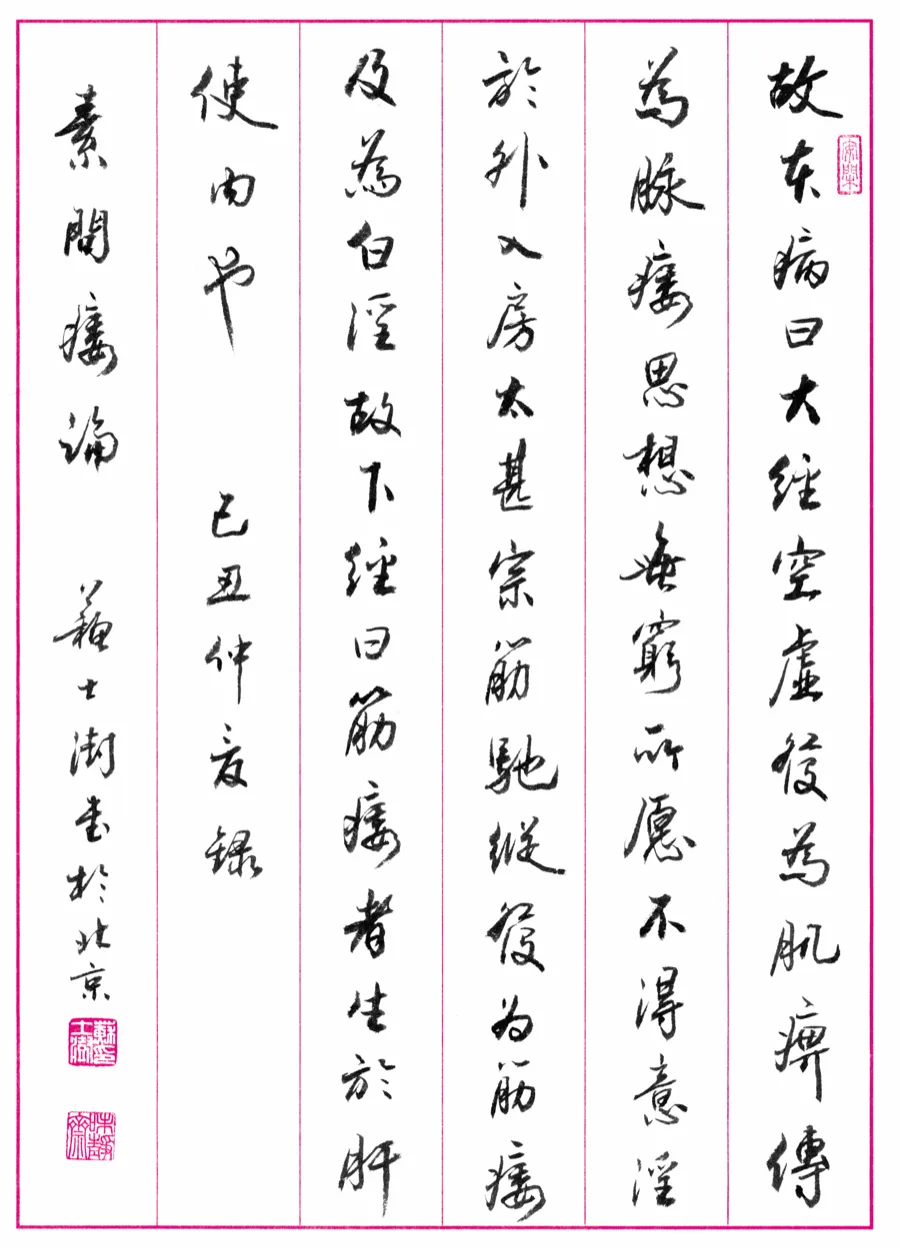 故本病曰大經空虛發為肌痹傳
為脉痿思想無窮所愿不得意淫
於外入房太甚宗筋馳縱發为筋痿
及為白淫故下經曰筋痿者生於肝
使内也 己丑仲夏録
素問痿論 蘇士澍書於北京